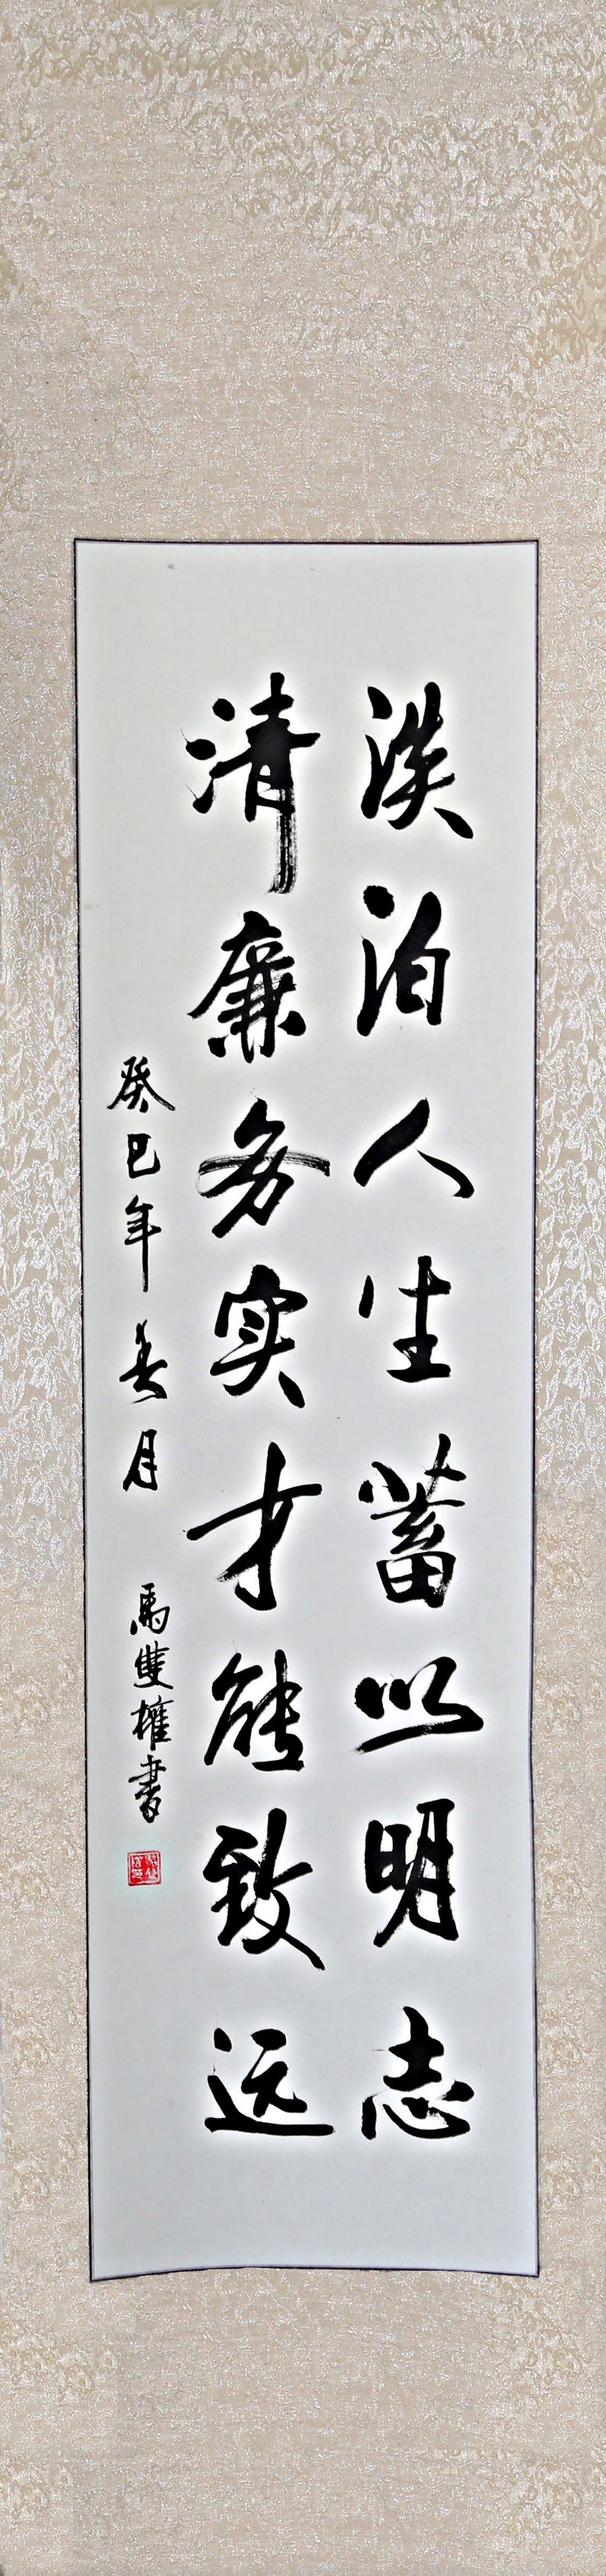 淡泊人生蓄以明志
清廉务实才能致远
癸巳年春月 馬雙權書